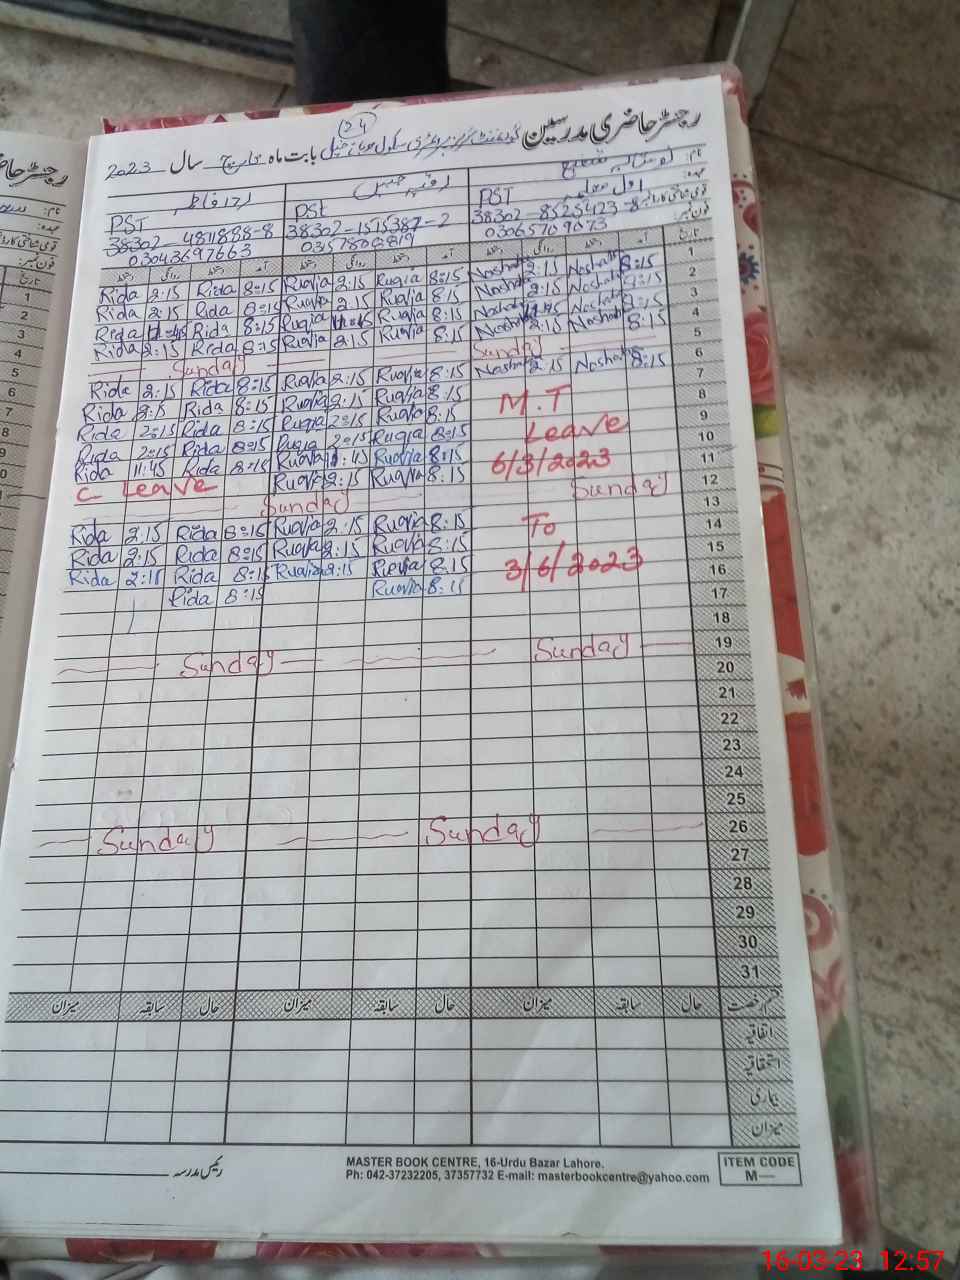 رجسٹر حاضری مدرسین گورنمنٹ گرلز پرائمری سکول بابت ماہ مارچ سال 2023
24
PST PSt PST
38302-4811888-8 38302-1515387-2 38302-8525423-8
03043697663 03578006819 03065709073
تاریخ
Rida 2:15 Rida 8:15 Ruqia 2:15 Ruqia 8:15 Noshaba 2:15 Noshaba 8:15 1
Rida 2:15 Rida 8:15 Ruqia 2:15 Ruqia 8:15 Noshaba 2:15 Noshaba 8:15 2
Rida 11:45 Rida 8:15 Ruqia 11:45 Ruqia 8:15 Noshaba 11:45 Noshaba 8:15 3
Rida 2:15 Rida 8:15 Ruqia 2:15 Ruqia 8:15 Noshaba 2:15 Noshaba 8:15 4
Sunday Sunday 5
Rida 2:15 Rida 8:15 Ruqia 2:15 Ruqia 8:15 Noshaba 2:15 Noshaba 8:15 6
Rida 2:15 Rida 8:15 Ruqia 2:15 Ruqia 8:15 M.T 7
Rida 2:15 Rida 8:15 Ruqia 2:15 Ruqia 8:15 Leave 8
Rida 2:15 Rida 8:15 Ruqia 2:15 Ruqia 8:15 9
Rida 11:45 Rida 8:15 Ruqia 11:45 Ruqia 8:15 6/3/2023 10
C Leave Ruqia 2:15 Ruqia 8:15 11
Sunday Sunday 12
Rida 2:15 Rida 8:15 Ruqia 2:15 Ruqia 8:15 To 13
Rida 2:15 Rida 8:15 Ruqia 2:15 Ruqia 8:15 14
Rida 2:15 Rida 8:15 Ruqia 2:15 Ruqia 8:15 3/6/2023 15
Rida 8:15 Ruqia 8:15 16
17
18
Sunday Sunday 19
20
21
22
23
24
25
Sunday Sunday 26
27
28
29
30
31
میزان سابقہ حال میزان سابقہ حال میزان سابقہ حال قسم رخصت
اتفاقیہ
استحقاقیہ
بیماری
میزان
رئیس مدرسہ
MASTER BOOK CENTRE, 16-Urdu Bazar Lahore.
Ph: 042-37232205, 37357732 E-mail: masterbookcentre@yahoo.com
ITEM CODE
M—
16-03-23 12:57